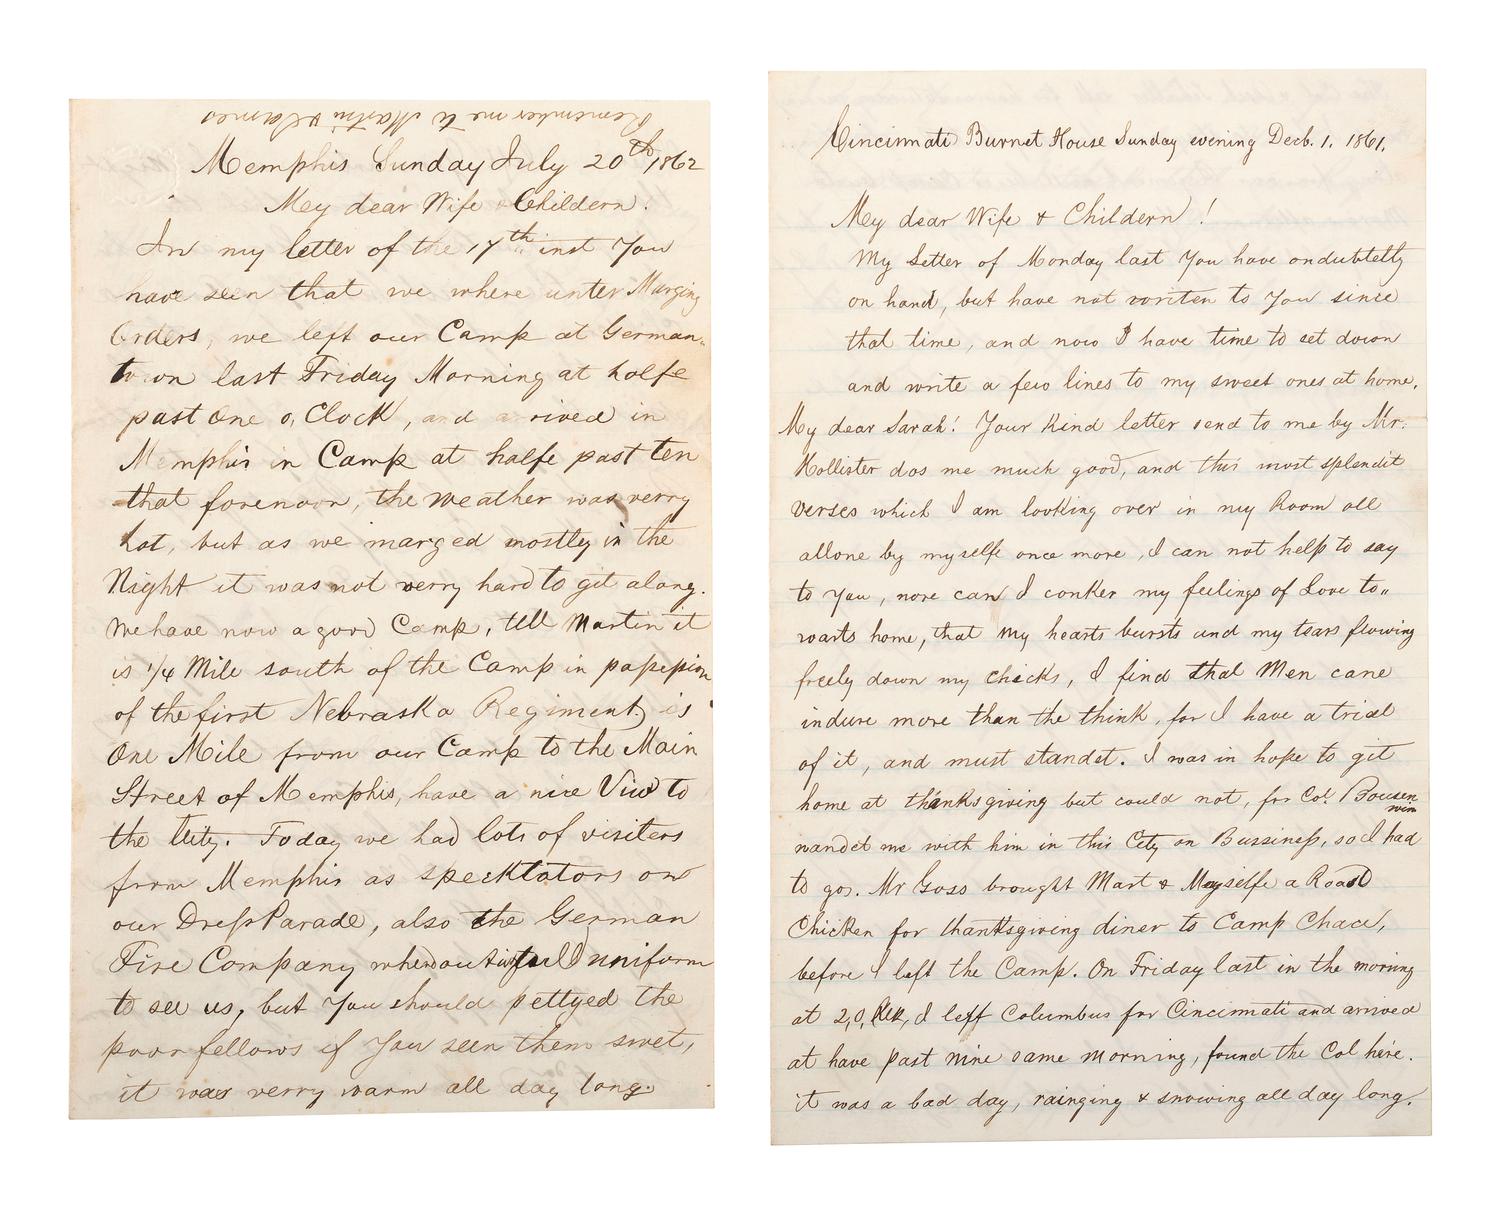 Remember me to Martin & James
Memphis Sunday July 20th, 1862
My dear Wife & Childern!
In my letter of the 17th inst You
have seen that we where unter Marging
Orders, we left our Camp at German„
town last Friday Morning at halfe
past One o, Clock, and arived in
Memphis in Camp at halfe past ten
that forenoon, the weather was verry
hot, but as we marged mostly in the
Night it was not verry hard to git along.
We have now a good Camp, tell Martin it
is 1/4 Mile south of the Camp in possesion
of the first Nebraska Regiment) is
One Mile from our Camp to the Main
Street of Memphis, have a nice View to
the City. Today we had lots of visiters
from Memphis as specktators on
our Dress Parade, also the German
Fire Company uniform
to see us, but You should pettyed the
poor fellows if You seen them swet,
it was verry warm all day long.
Cincinnati Burnet House Sunday evening Decb. 1. 1861.
My dear Wife & Childern!
My Letter of Monday last You have ondubtetly
on hand, but have not writen to You since
that time, and now I have time to set down
and write a few lines to my sweet ones at home.
My dear Sarah! Your kind letter send to me by Mr.
Hollister dos me much good, and this most splendit
verses which I am looking over in my Room all
allone by myselfe once more, I can not help to say
to You, nore can I conker my feelings of Love to„
warts home, that my hearts bursts und my tears flowing
freely down my chicks, I find that Men cane
indure more than the think, for I have a trial
of it, and must standet. I was in hope to git
home at thanksgiving but could not, for Col. Bousen
wein
wandet me with him in this City on Bussiness, so I had
to go. Mr Goss brought Mart & Myselfe a Roast
Chicken for thanksgiving diner to Camp Chace,
before I left the Camp. On Friday last in the morning
at 2, I left Columbus for Cincinnati and arived
at have past nine same morning, found the Col here.
it was a bad day, rainging & snowing all day long.